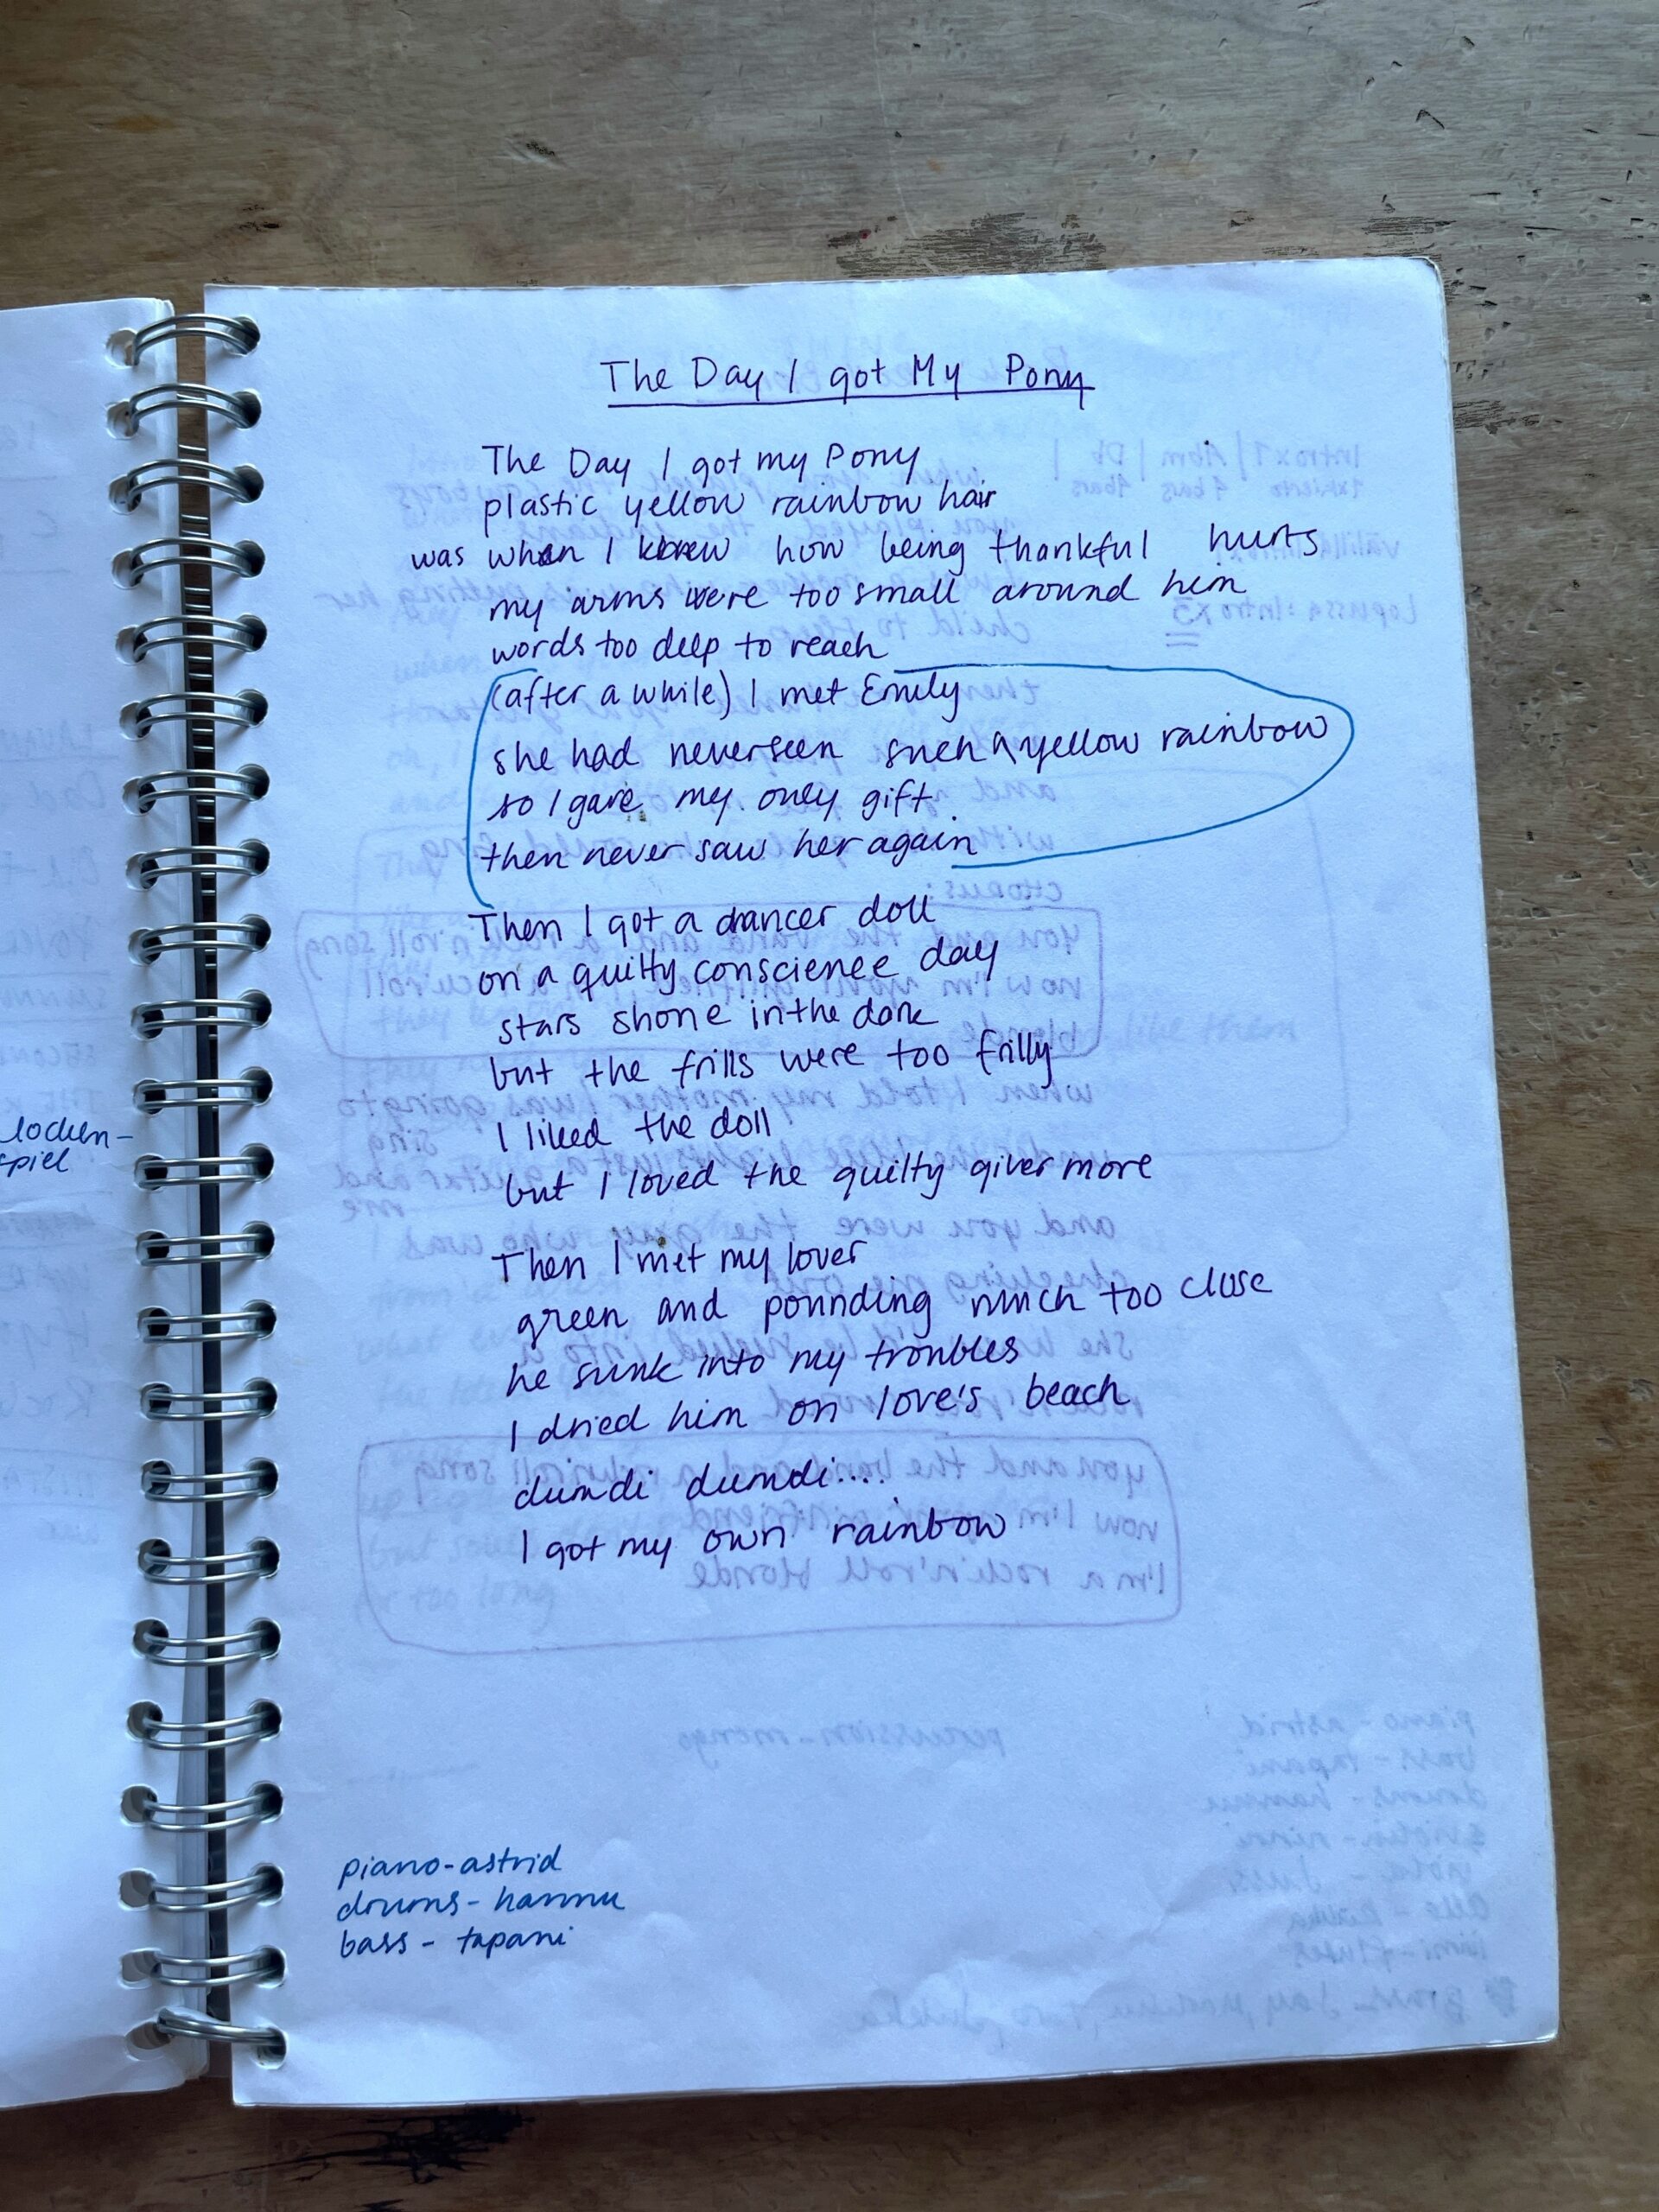 The Day I got My Pony
The Day I got my Pony
plastic yellow rainbow hair
was when I knew how being thankful hurts
my arms were too small around him
words too deep to reach
(after a while) I met Emily
she had never seen such a yellow rainbow
so I gave my only gift
then never saw her again
Then I got a dancer doll
on a guilty conscience day
stars shone in the dark
but the frills were too frilly
I liked the doll
but I loved the guilty giver more
Then I met my lover
green and pounding much too close
he sunk into my troubles
I dried him on love's beach
dumdi dumdi....
I got my own rainbow
piano-astrid
drums-hannu
bass-tapani
locken-
spiel